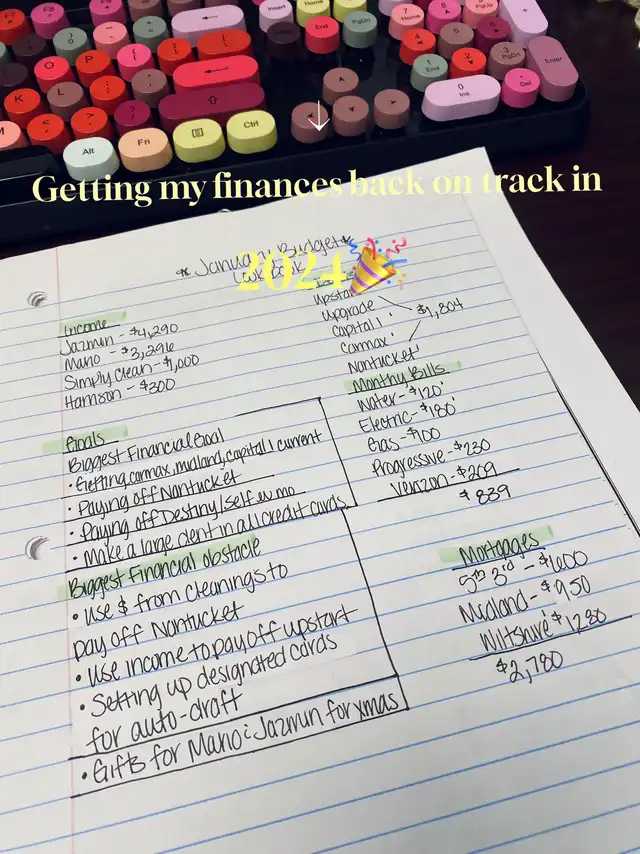 F8
Insert
Home
PgDn
End
7
Home
9
PgUp
+
O
P
K
L
4
5
6
1
End
2
3
PgDn
Enter
0
Ins
.
Del
M
Alt
Fn
Ctrl
Getting my finances back on track in
2024🎉
*January Budget*
Income
Jazmin - $4,290
Mano - $3,296
Simply Clean - $1,000
Harrison - $300
Upstart
Upgrade
Capital 1
Carmax
Nantucket
$1,804
Monthy Bills
Water - $120
Electric - $180
Gas - $100
Progressive - $230
Verizon - $209
$839
Goals
Biggest Financial Goal
• Getting, carmax, midland, capital 1 current
• Paying off Nantucket
• Paying off Destiny/Self
• Make a large dent in all credit cards
Biggest Financial obstacle
• Use $ from cleanings to
pay off Nantucket
• Use income to pay off upstart
• Setting up designated cards
for auto-draft
• Gifts for Mano & Jazmin for xmas
Mortgages
5th 3rd - $600
Midland - $950
Wiltshire $1,230
$2,780